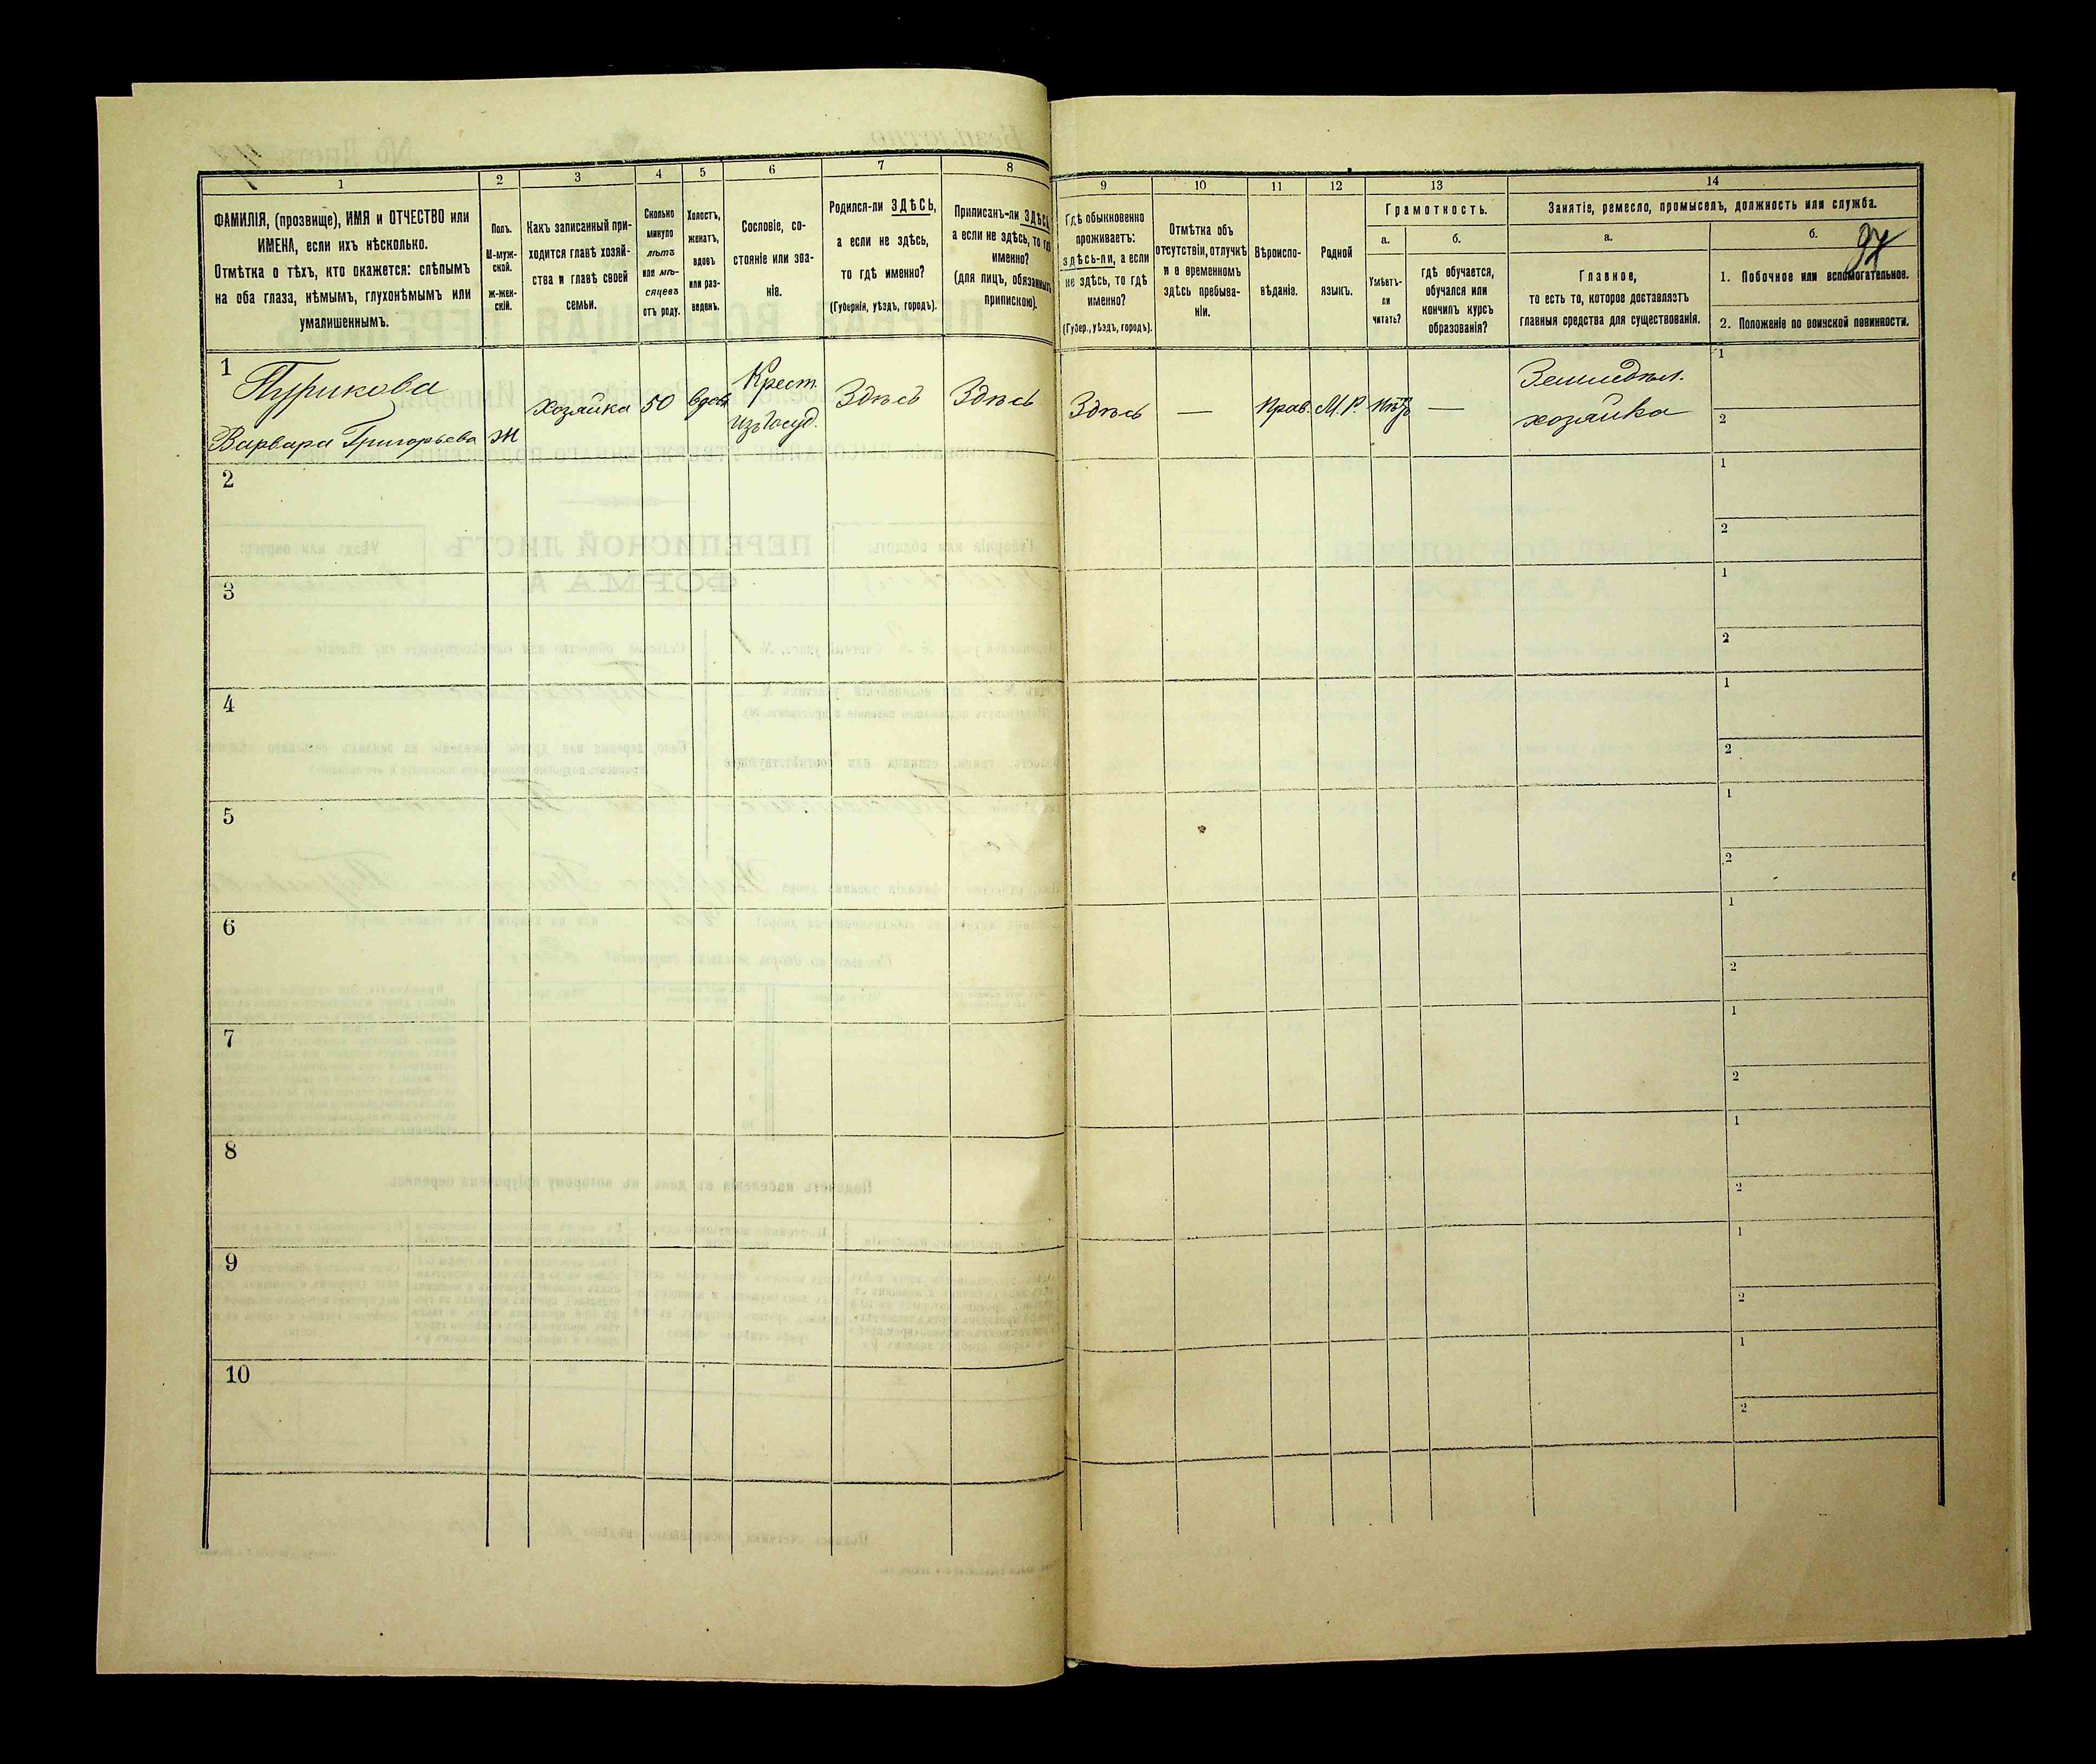 1
2
3
4
5
6
7
8
ФАМИЛІЯ, (прозвище), ИМЯ и ОТЧЕСТВО или
ИМЕНА, если ихъ нѣсколько.
Отмѣтка о тѣхъ, кто окажется: слѣпымъ
на оба глаза, нѣмымъ, глухонѣмымъ или
умалишеннымъ.
Полъ.
М-муж-
ской.
ж-жен-
скій.
Какъ записанный при-
ходится главѣ хозяй-
ства и главѣ своей
семьи.
Сколько
минуло
лѣтъ
или мѣ-
сяцевъ
отъ роду.
Холостъ,
женатъ,
вдовъ
или раз-
веденъ.
Сословіе, со-
стояніе или зва-
ніе.
Родился-ли ЗДѢСЬ,
а если не здѣсь,
то гдѣ именно?
(Губернія, уѣздъ, городъ).
Приписанъ-ли ЗДѢСЬ
а если не здѣсь, то гдѣ
именно?
(для лицъ, обязанныхъ
припискою).
1
Пурикова
Варвара Григорьева
ж
хозяйка
50
вдова
Крест.
изъ госуд.
Здѣсь
Здѣсь
2
3
4
5
6
7
8
9
10
9
10
11
12
13
14
Гдѣ обыкновенно
проживаетъ:
здѣсь-ли, а если
не здѣсь, то гдѣ
именно?
(Губер., уѣздъ, городъ).
Отмѣтка объ
отсутствіи, отлучкѣ
и о временномъ
здѣсь пребыва-
ніи.
Вѣроиспо-
вѣданіе.
Родной
языкъ.
Грамотность.
а.
Умѣетъ-
ли
читать?
б.
гдѣ обучается,
обучался или
кончилъ курсъ
образованія?
Занятіе, ремесло, промыселъ, должность или служба.
а.
Главное,
то есть то, которое доставляетъ
главныя средства для существованія.
б.
97
1. Побочное или вспомогательное.
2. Положеніе по воинской повинности.
Здѣсь
—
Прав.
М.Р.
Нѣтъ
—
Земледѣл.
хозяйка
1
2
1
2
1
2
1
2
1
2
1
2
1
2
1
2
1
2
1
2